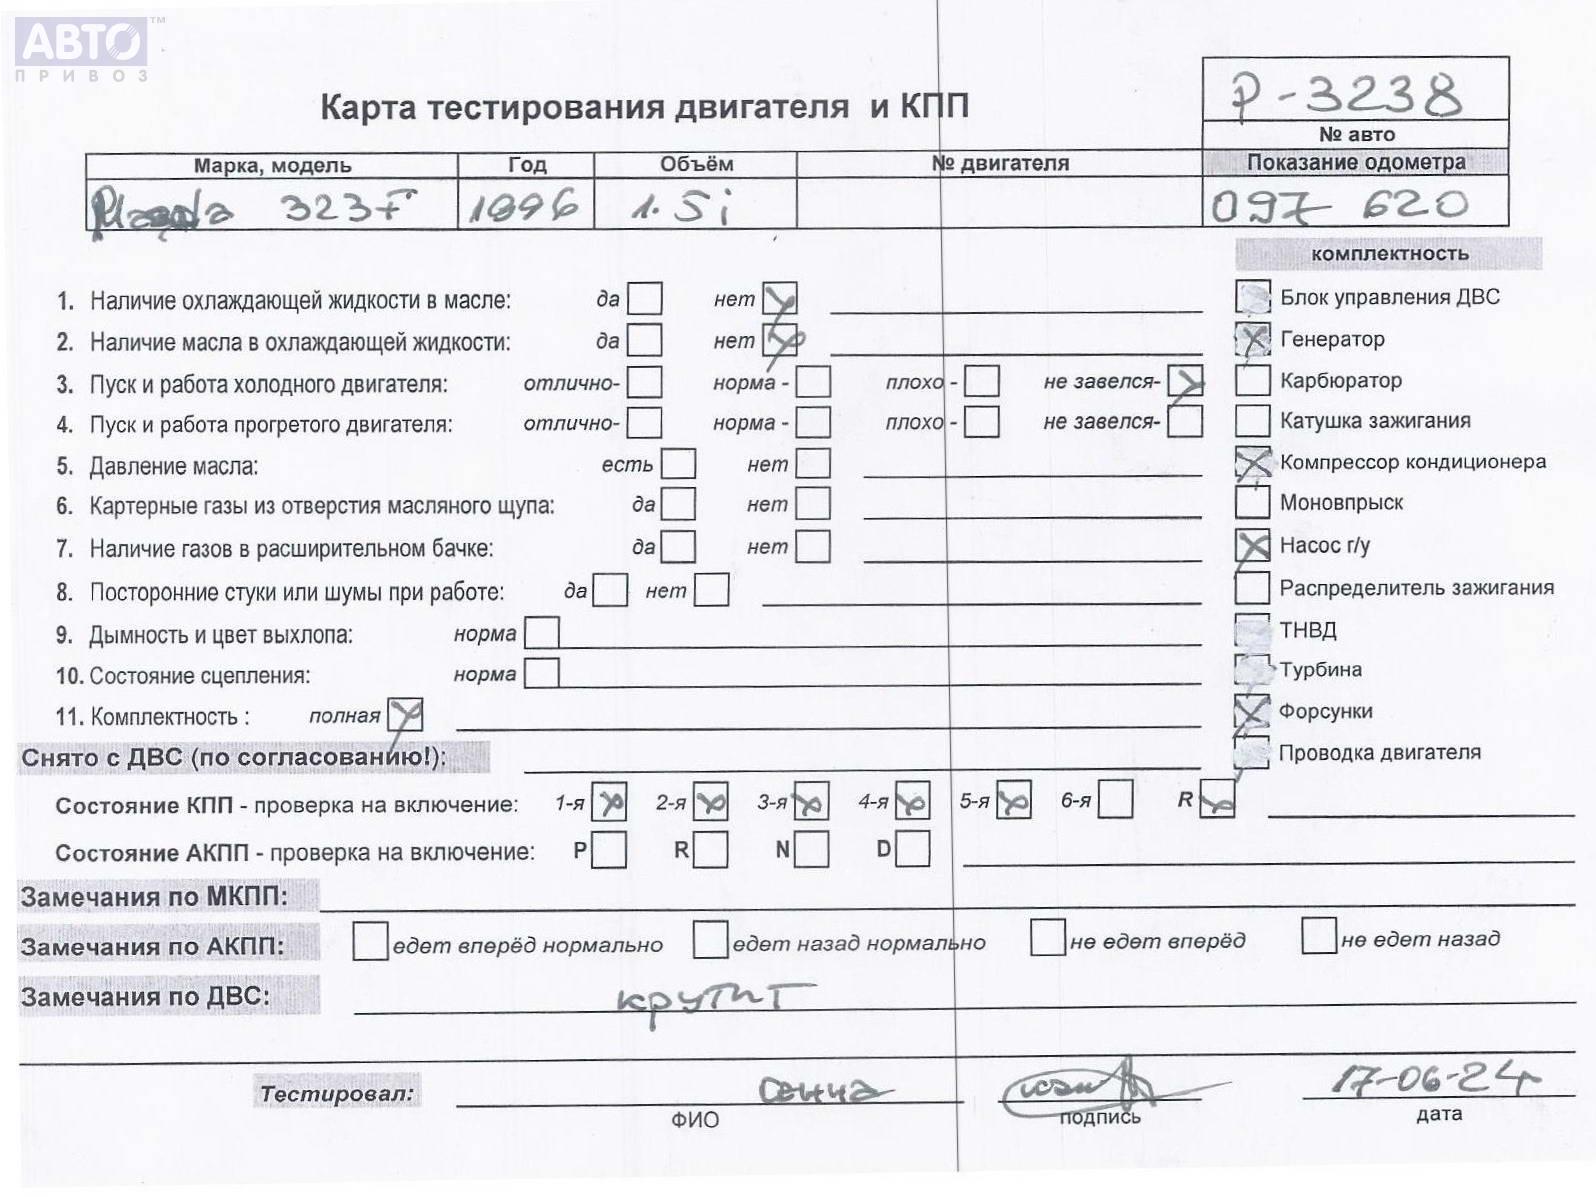 АВТО™
ПРИВОЗ
Карта тестирования двигателя и КПП
P-3238
№ авто
Марка, модель Год Объём № двигателя Показание одометра
Mazda 323F 1996 1.5i 097 620
комплектность
1. Наличие охлаждающей жидкости в масле: да нет
Блок управления ДВС
2. Наличие масла в охлаждающей жидкости: да нет
Генератор
3. Пуск и работа холодного двигателя: отлично- норма - плохо - не завелся-
Карбюратор
4. Пуск и работа прогретого двигателя: отлично- норма - плохо - не завелся-
Катушка зажигания
5. Давление масла: есть нет
Компрессор кондиционера
6. Картерные газы из отверстия масляного щупа: да нет
Моновпрыск
7. Наличие газов в расширительном бачке: да нет
Насос г/у
8. Посторонние стуки или шумы при работе: да нет
Распределитель зажигания
9. Дымность и цвет выхлопа: норма
ТНВД
10. Состояние сцепления: норма
Турбина
11. Комплектность : полная
Форсунки
Снято с ДВС (по согласованию!):
Проводка двигателя
Состояние КПП - проверка на включение: 1-я 2-я 3-я 4-я 5-я 6-я R
Состояние АКПП - проверка на включение: P R N D
Замечания по МКПП:
Замечания по АКПП: едет вперёд нормально едет назад нормально не едет вперёд не едет назад
Замечания по ДВС: крутит
Тестировал: 17-06-24
ФИО подпись дата